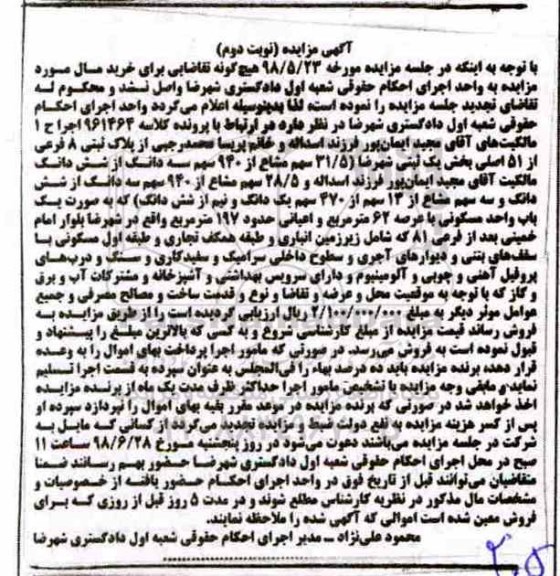 آگهی مزایده (نوبت دوم)
با توجه به اینکه در جلسه مزایده مورخه ۹۸/۵/۲۳ هیچ‌گونه تقاضایی برای خرید مال مورد
مزایده به واحد اجرای احکام حقوقی شعبه اول دادگستری شهرضا واصل نشد و محکوم له
تقاضای تجدید جلسه مزایده را نموده است، لذا بدینوسیله اعلام می‌گردد واحد اجرای احکام
حقوقی شعبه اول دادگستری شهرضا در نظر دارد در ارتباط با پرونده کلاسه ۹۶۱۴۶۴ اجرا ح ۱
مالکیت‌های آقای مجید ایمان‌پور فرزند اسداله و خانم پریسا محمدرجبی از پلاک ثبتی ۸ فرعی
از ۵۱ اصلی بخش یک ثبتی شهرضا (۳۱/۵ سهم مشاع از ۹۴۰ سهم سه دانگ از شش دانگ
مالکیت آقای مجید ایمان‌پور فرزند اسداله و ۲۸/۵ سهم مشاع از ۹۴۰ سهم سه دانگ از شش
دانگ و سه سهم مشاع از ۱۳ سهم از ۴۷۰ سهم یک دانگ و نیم از شش دانگ) که به صورت یک
باب واحد مسکونی با عرصه ۶۲ مترمربع و اعیانی حدود ۱۹۷ مترمربع واقع در شهرضا بلوار امام
خمینی بعد از فرعی ۸۱ که شامل زیرزمین انباری و طبقه همکف تجاری و طبقه اول مسکونی با
سقف‌های بتنی و دیوارهای آجری و سطوح داخلی سرامیک و سفیدکاری و سنگ و درب‌های
پروفیل آهنی و چوبی و آلومینیوم و دارای سرویس بهداشتی و آشپزخانه و مشترکات آب و برق
و گاز که با توجه به موقعیت محل و عرضه و تقاضا و نوع و قدمت ساخت و مصالح مصرفی و جمیع
عوامل موثر دیگر به مبلغ ۲/۱۰۰/۰۰۰/۰۰۰ ریال ارزیابی گردیده است را از طریق مزایده به
فروش رساند قیمت مزایده از مبلغ کارشناسی شروع و به کسی که بالاترین مبلغ را پیشنهاد و
قبول نموده است به فروش می‌رسد. در صورتی که مامور اجرا پرداخت بهای اموال را به وعده
قرار دهد، برنده مزایده باید ده درصد بهاء را فی‌المجلس به عنوان سپرده به قسمت اجرا تسلیم
نماید و مابقی وجه مزایده با تشخیص مامور اجرا حداکثر ظرف مدت یک ماه از برنده مزایده
اخذ خواهد شد در صورتی که برنده مزایده در موعد مقرر بقیه بهای اموال را نپردازد سپرده او
پس از کسر هزینه مزایده به نفع دولت ضبط و مزایده تجدید می‌گردد از کسانی که مایل به
شرکت در جلسه مزایده می‌باشند دعوت می‌شود در روز پنجشنبه مورخ ۹۸/۶/۲۸ ساعت ۱۱
صبح در محل اجرای احکام حقوقی شعبه اول دادگستری شهرضا حضور بهم رسانند ضمنا
متقاضیان می‌توانند قبل از تاریخ فوق در واحد اجرای احکام حضور یافته از خصوصیات و
مشخصات مال مذکور در نظریه کارشناس مطلع شوند و در مدت ۵ روز قبل از روزی که برای
فروش معین شده است اموالی که آگهی شده را ملاحظه نمایند.
محمود علی‌نژاد ــ مدیر اجرای احکام حقوقی شعبه اول دادگستری شهرضا